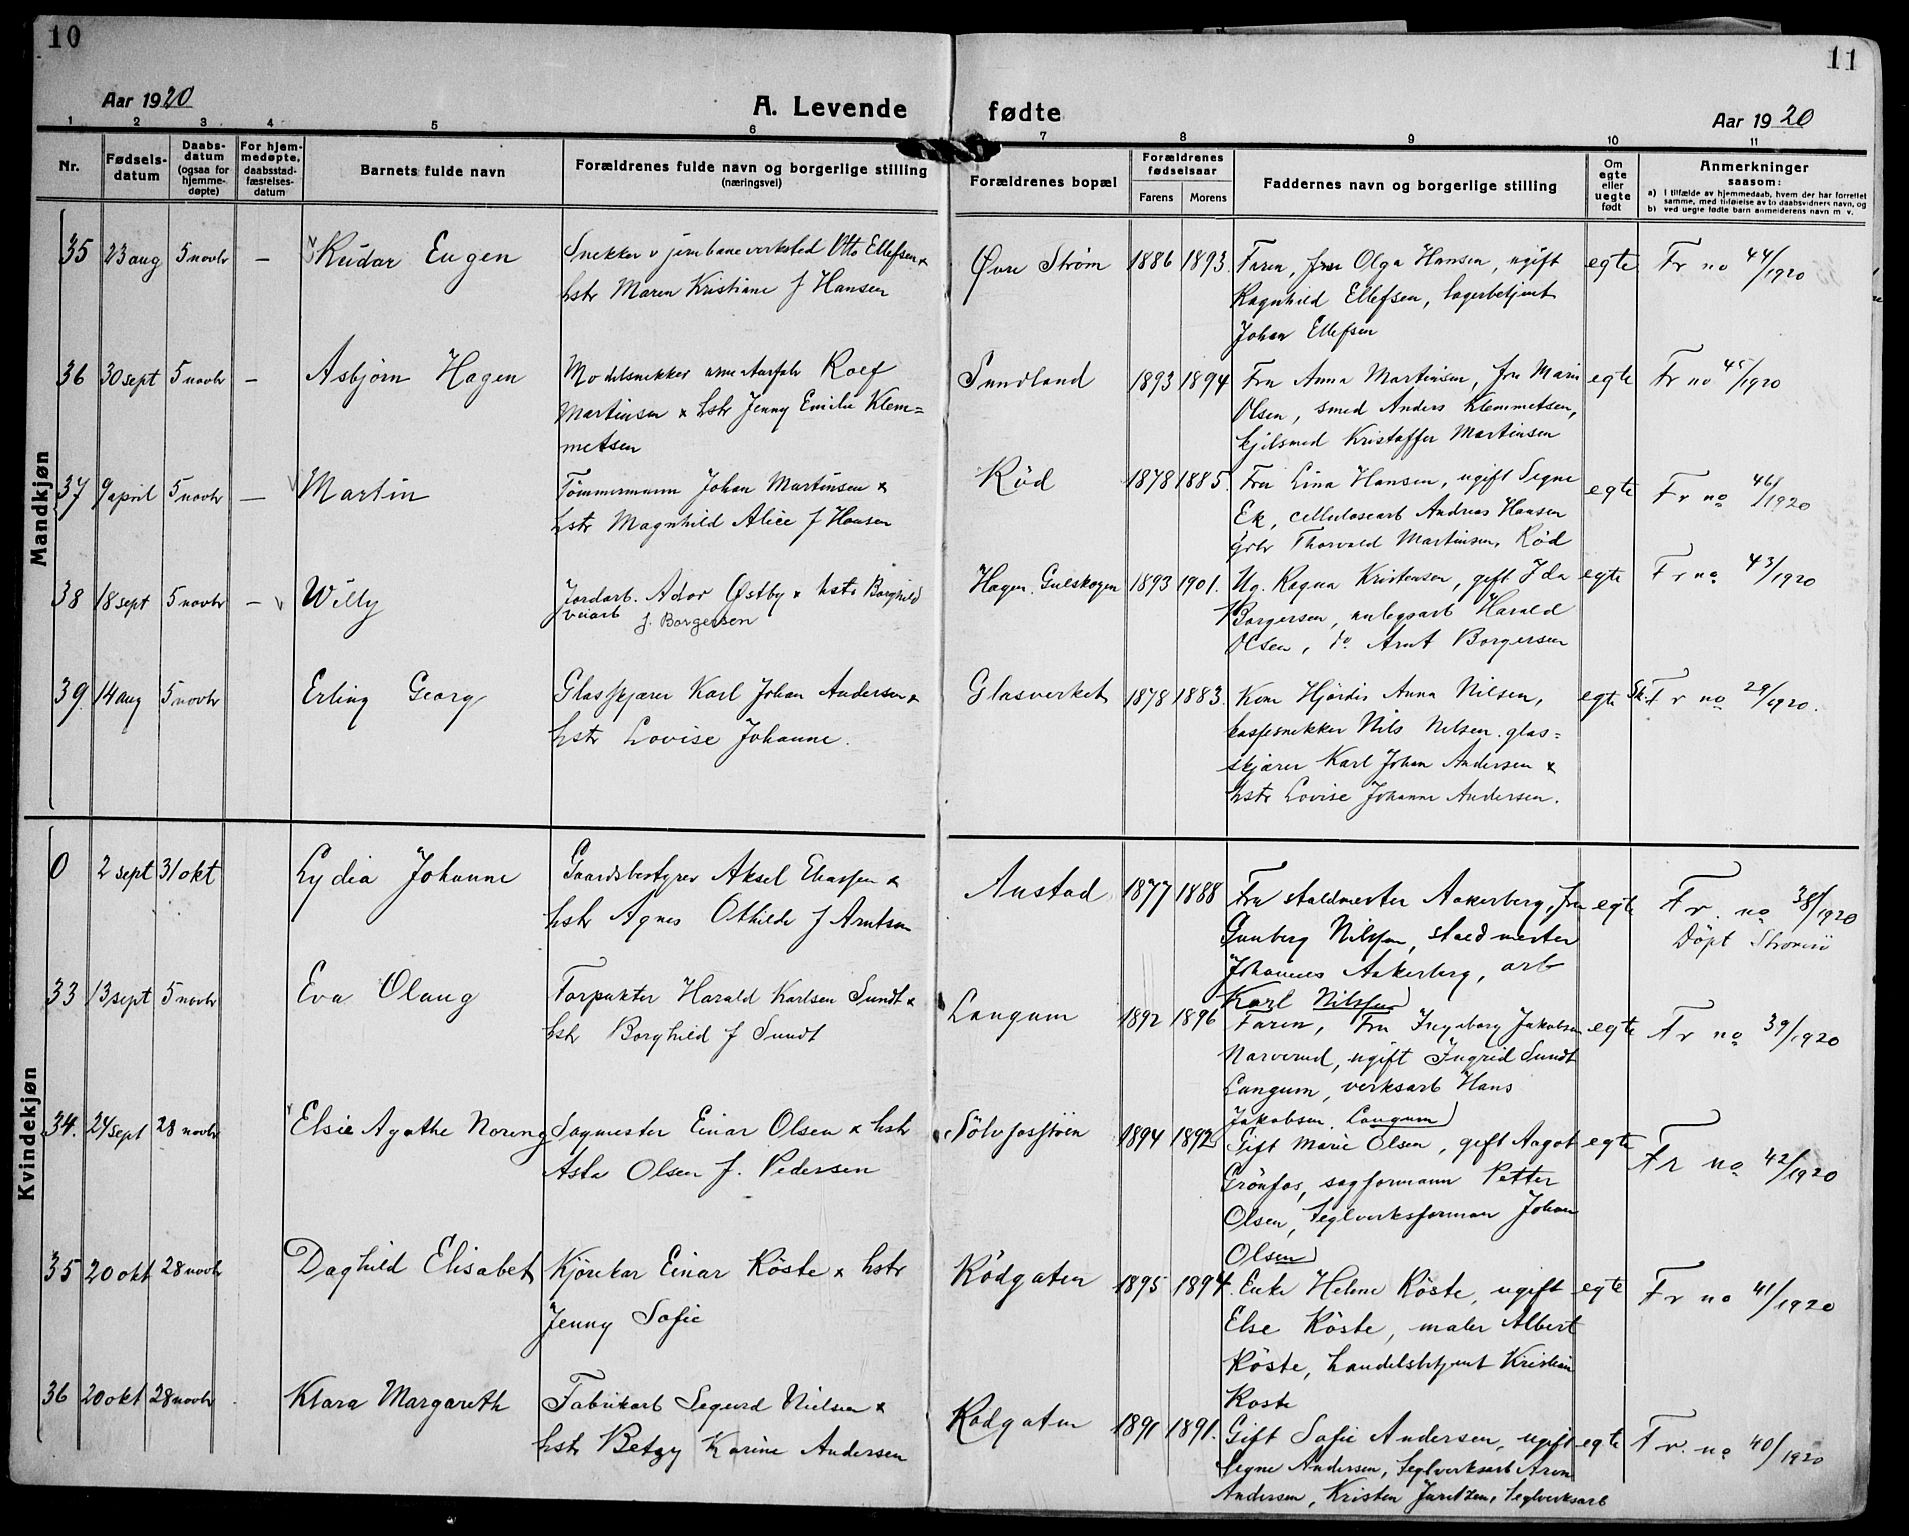 10
11
Aar 1920
A. Levende fødte
Aar 1920
1 2 3 4 5 6 7 8 9 10 11
Nr.
Fødsels-
datum
Daabs-
datum
(ogsaa for
hjemme-
døpte)
For hjem-
medøpte,
daabsstad-
fæstelses-
datum
Barnets fulde navn
Forældrenes fulde navn og borgerlige stilling
(næringsvei)
Forældrenes bopæl
Forældrenes
fødselsaar
Farens Morens
Faddernes navn og borgerlige stilling
Om
egte
eller
uegte
født
Anmerkninger
saasom:
a) I tilfælde av hjemmedaab, hvem der har forrettet
samme, med tilføielse av to daabsvidners navn, og
b) ved uegte fødte barn anmelderens navn m. v.
Mandkjøn
35 23 aug 5 novbr — Reidar Eugen
Snekker v jernbaneverksted Otto Ellefsen &
hstr Maren Kristiane f Hansen
Øvre Strøm 1886 1893.
Faren, fru Olga Hansen, ugift
Ragnhild Ellefsen, lagerbetjent
Johan Ellefsen
egte Fr no 44/1920
36 30 sept 5 novbr — Asbjørn Hagen
Modelsnekker Rolf
Martinsen & hstr Jenny Emilie Klem=
metsen
Sundland 1893 1894
Fru Anna Martinsen, fru Marie
Olsen, smed Anders Klemmetsen,
Kristoffer Martinsen
egte Fr no 45/1920
37 9 april 5 novbr — Martin
Tømmermann Johan Martinsen &
hstr Magnhild Alice f Hansen
Rød 1878 1885.
Fru Lina Hansen, ugift Signe
Ek, cellulosearb Andreas Hansen
grbr Thorvald Martinsen, Rød
egte Fr no 46/1920
38 18 sept 5 novbr — Willy
Jordarb. Ador Østby & hstr Borghild
veiarb f. Borgersen
Hagen, Gulskogen 1893 1901.
Ug. Ragna Kristensen, gift Ida
Borgersen, anlegsarb Harald
Olsen, do Arnt Borgersen
egte Fr no 43/1920
39. 14 aug 5 novbr Erling Georg
Glasskjærer Karl Johan Andersen &
hstr Lovise Johanne.
Glasverket 1878 1883.
Kone Hjørdis Anna Nilsen,
kassesnekker Nils Nilsen. glas=
skjærer Karl Johan Andersen &
hstr Lovise Johanne Andersen.
egte Sk. Fr no 29/1920.
Kvindekjøn
0 2 sept 31 okt Lydia Johanne
Gaardsbestyrer Aksel Eliassen &
hstr Agnes Othilde f Arntsen
Austad 1877 1888
Fru staldmester Aakerberg, fru
Gunberg Nilsson, staldmester
Johannes Aakerberg, arb
Karl Nilsson
egte Fr. no 38/1920
Döpt Strömsö
33 13 sept 5 novbr Eva Olaug
Forpakter Harald Karlsen Sundt &
hstr Borghild f Sundt
Langum 1892 1896
Faren, Fru Ingeborg Jakobsen
Narverud, ugift Ingrid Sundt
Langum, verksarb Hans
Jakobsen, Langum
egte Fr no 39/1920
34. 24 sept 28 novbr Elsie Agathe Noreng
Sagmester Einar Olsen & hstr
Asta Olsen f. Pedersen
1894 1892
Gift Marie Olsen, gift Aagot
Grönfos, sagformann Petter
Olsen, teglverksforman Johan
Olsen
egte Fr no 42/1920
35 20 okt 28 novbr Daghild Elisabet
Kjörekar Einar Röste & hstr
Jenny Sofie
Rödgaten 1895 1894.
Enke Helene Röste, ugift
Else Röste, maler Albert
Röste, handelsbetjent Kristian
Röste
egte Fr no 41/1920
36 20 okt 28 novbr Klara Margareth
Fabrikarb Segurd Nielsen &
hstr Betzy Karine Andersen
Rödgaten 1891 1891.
Gift Sofie Andersen, ugift
Signe Andersen, teglverksarb Aron
Andersen, Kristen Juritzen, teglverksarb
egte Fr. no 40/1920